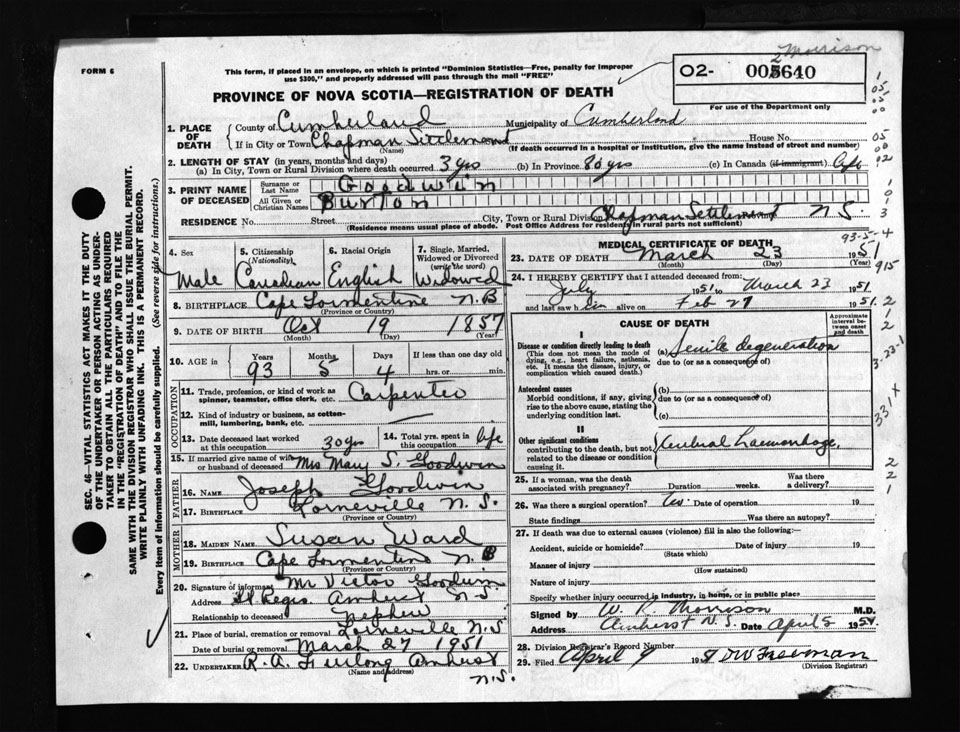 Morrison
FORM 6
This form, if placed in an envelope, on which is printed "Dominion Statistics—Free, penalty for improper
use $300," and properly addressed will pass through the mail "FREE"
02- 005640
2
For use of the Department only
PROVINCE OF NOVA SCOTIA—REGISTRATION OF DEATH
SEC. 46—VITAL STATISTICS ACT MAKES IT THE DUTY
OF THE UNDERTAKER OR PERSON ACTING AS UNDER-
TAKER TO OBTAIN ALL THE PARTICULARS REQUIRED
IN THE "REGISTRATION OF DEATH" AND TO FILE THE
SAME WITH THE DIVISION REGISTRAR WHO SHALL ISSUE THE BURIAL PERMIT.
WRITE PLAINLY WITH UNFADING INK. THIS IS A PERMANENT RECORD.
Every item of information should be carefully supplied. (See reverse side for instructions.)
1. PLACE OF DEATH
County of Cumberland Municipality of Cumberland
If in City or Town Chapman Settlement House No.
(Name) (If death occurred in a hospital or Institution, give the name instead of street and number)
2. LENGTH OF STAY (in years, months and days)
(a) In City, Town or Rural Division where death occurred 3 yrs (b) In Province 80 yrs (c) In Canada (if immigrant) life
3. PRINT NAME OF DECEASED
Surname or Last Name Goodwin
All Given or Christian Names Burton
RESIDENCE No. Street City, Town or Rural Division Chapman Settlement N.S.
(Residence means usual place of abode. Post Office Address for residence in rural parts not sufficient)
4. Sex
5. Citizenship (Nationality)
6. Racial Origin
7. Single, Married, Widowed or Divorced (write the word)
Male Canadian English Widowed
8. BIRTHPLACE Cape Tormentine N.B
(Province or Country)
9. DATE OF BIRTH Oct 19 1857
(Month) (Day) (Year)
10. AGE in Years Months Days If less than one day old
93 5 4 hrs. or min.
OCCUPATION
11. Trade, profession, or kind of work as
spinner, teamster, office clerk, etc. Carpenter
12. Kind of industry or business, as cotton-
mill, lumbering, bank, etc.
13. Date deceased last worked
at this occupation 30 yrs
14. Total yrs. spent in
this occupation life
15. If married give name of wife
or husband of deceased Mrs Mary S. Goodwin
FATHER
16. NAME Joseph Goodwin
17. BIRTHPLACE Lorneville N.S.
(Province or Country)
MOTHER
18. MAIDEN NAME Susan Ward
19. BIRTHPLACE Cape Tormentine N.B
(Province or Country)
20. Signature of informant Mr Victor Goodwin
Address Amherst N.S.
Relationship to deceased Nephew
21. Place of burial, cremation or removal Lorneville N.S
Date of burial or removal March 27 1951
22. UNDERTAKER R. A. Furlong Amherst
(Name and address) N.S.
MEDICAL CERTIFICATE OF DEATH
23. DATE OF DEATH March 23 1951
(Month) (Day) (Year)
24. I HEREBY CERTIFY that I attended deceased from:
July 1951 to March 23 1951
and last saw him alive on Feb 27 1951
CAUSE OF DEATH
Approximate interval between onset and death
I
Disease or condition directly leading to death
(This does not mean the mode of dying, e.g., heart failure, asthenia, etc. It means the disease, injury, or complication which caused death.)
(a) Senile degeneration
due to (or as a consequence of)
Antecedent causes
Morbid conditions, if any, giving rise to the above cause, stating the underlying condition last.
(b)
due to (or as a consequence of)
(c)
II
Other significant conditions
contributing to the death, but not related to the disease or condition causing it.
Cerebral haemorrhage,
25. If a woman, was the death
associated with pregnancy? Duration weeks. Was there a delivery?
26. Was there a surgical operation? Date of operation 19
State findings Was there an autopsy?
27. If death was due to external causes (violence) fill in also the following:—
Accident, suicide or homicide? Date of injury 19
(State which)
Manner of injury
(How sustained)
Nature of injury
Specify whether injury occurred in industry, in home, or in public place
Signed by W. P. Morrison M.D.
Address Amherst N.S. Date April 5 1951
28. Division Registrar's Record Number
29. Filed April 9 DW Freeman
(Division Registrar)
93-5-4
915